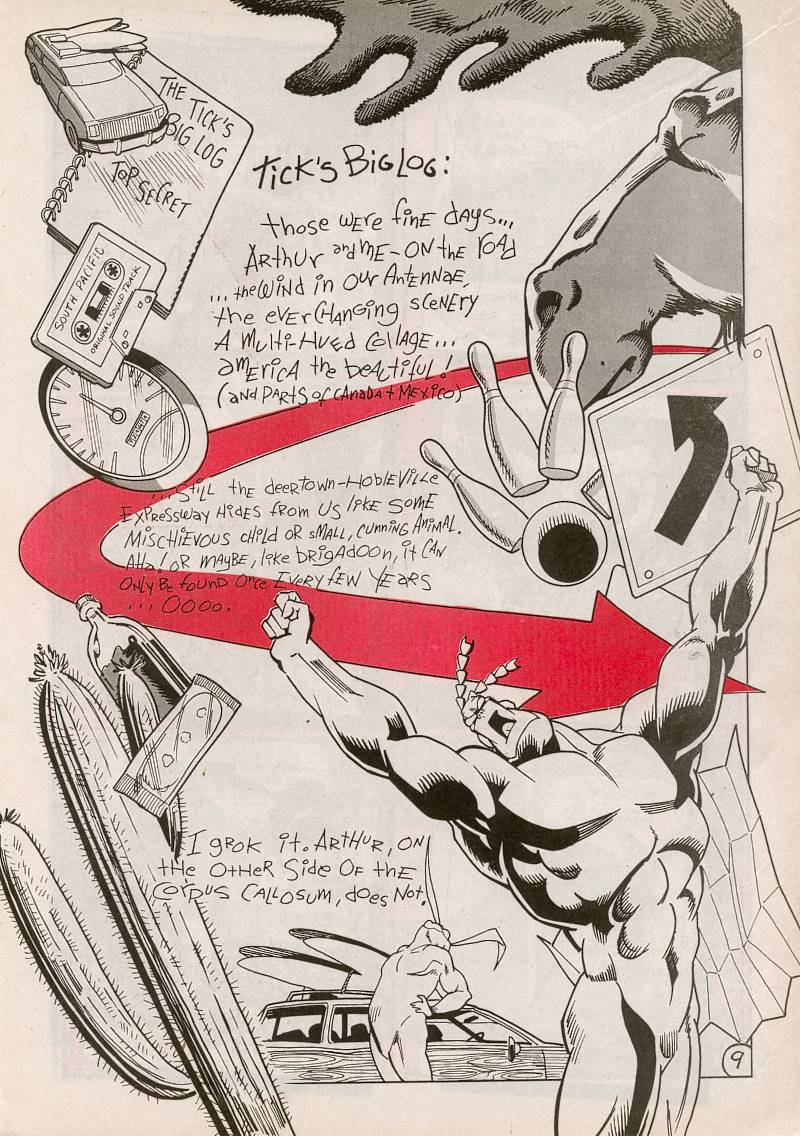 THE TICK'S
BIG LOG
TOP SECRET
TICK'S BIG LOG:
those WERE finE days...
ARTHUR and ME - ON the ROAD
... the WIND iN OUR ANTENNAE,
the eVER CHANGING SCENERY
A MULTi-HUED COLLAGE...
aMERiCA the bEAUtiFUL!
(and PARTS of CANADA + MEXiCO)
SOUTH PACIFIC
ORIGINAL SOUND TRACK
... Still the deertown-HobleVille
EXPRESSWAY HiDES from US liKE SOME
MiSCHiEVOUS CHild OR SMALL, CUNNiNG ANiMAL.
AHA! OR MAYBE, likE bRiGADOON, it CAN
ONLY BE fOUND ONCE EVERY fEW YEARS
... OOOO.
I gROK it. ARTHUR, ON
tHE OtHER SidE OF tHE
CORPUS CALLOSUM, dOES NOt.
9